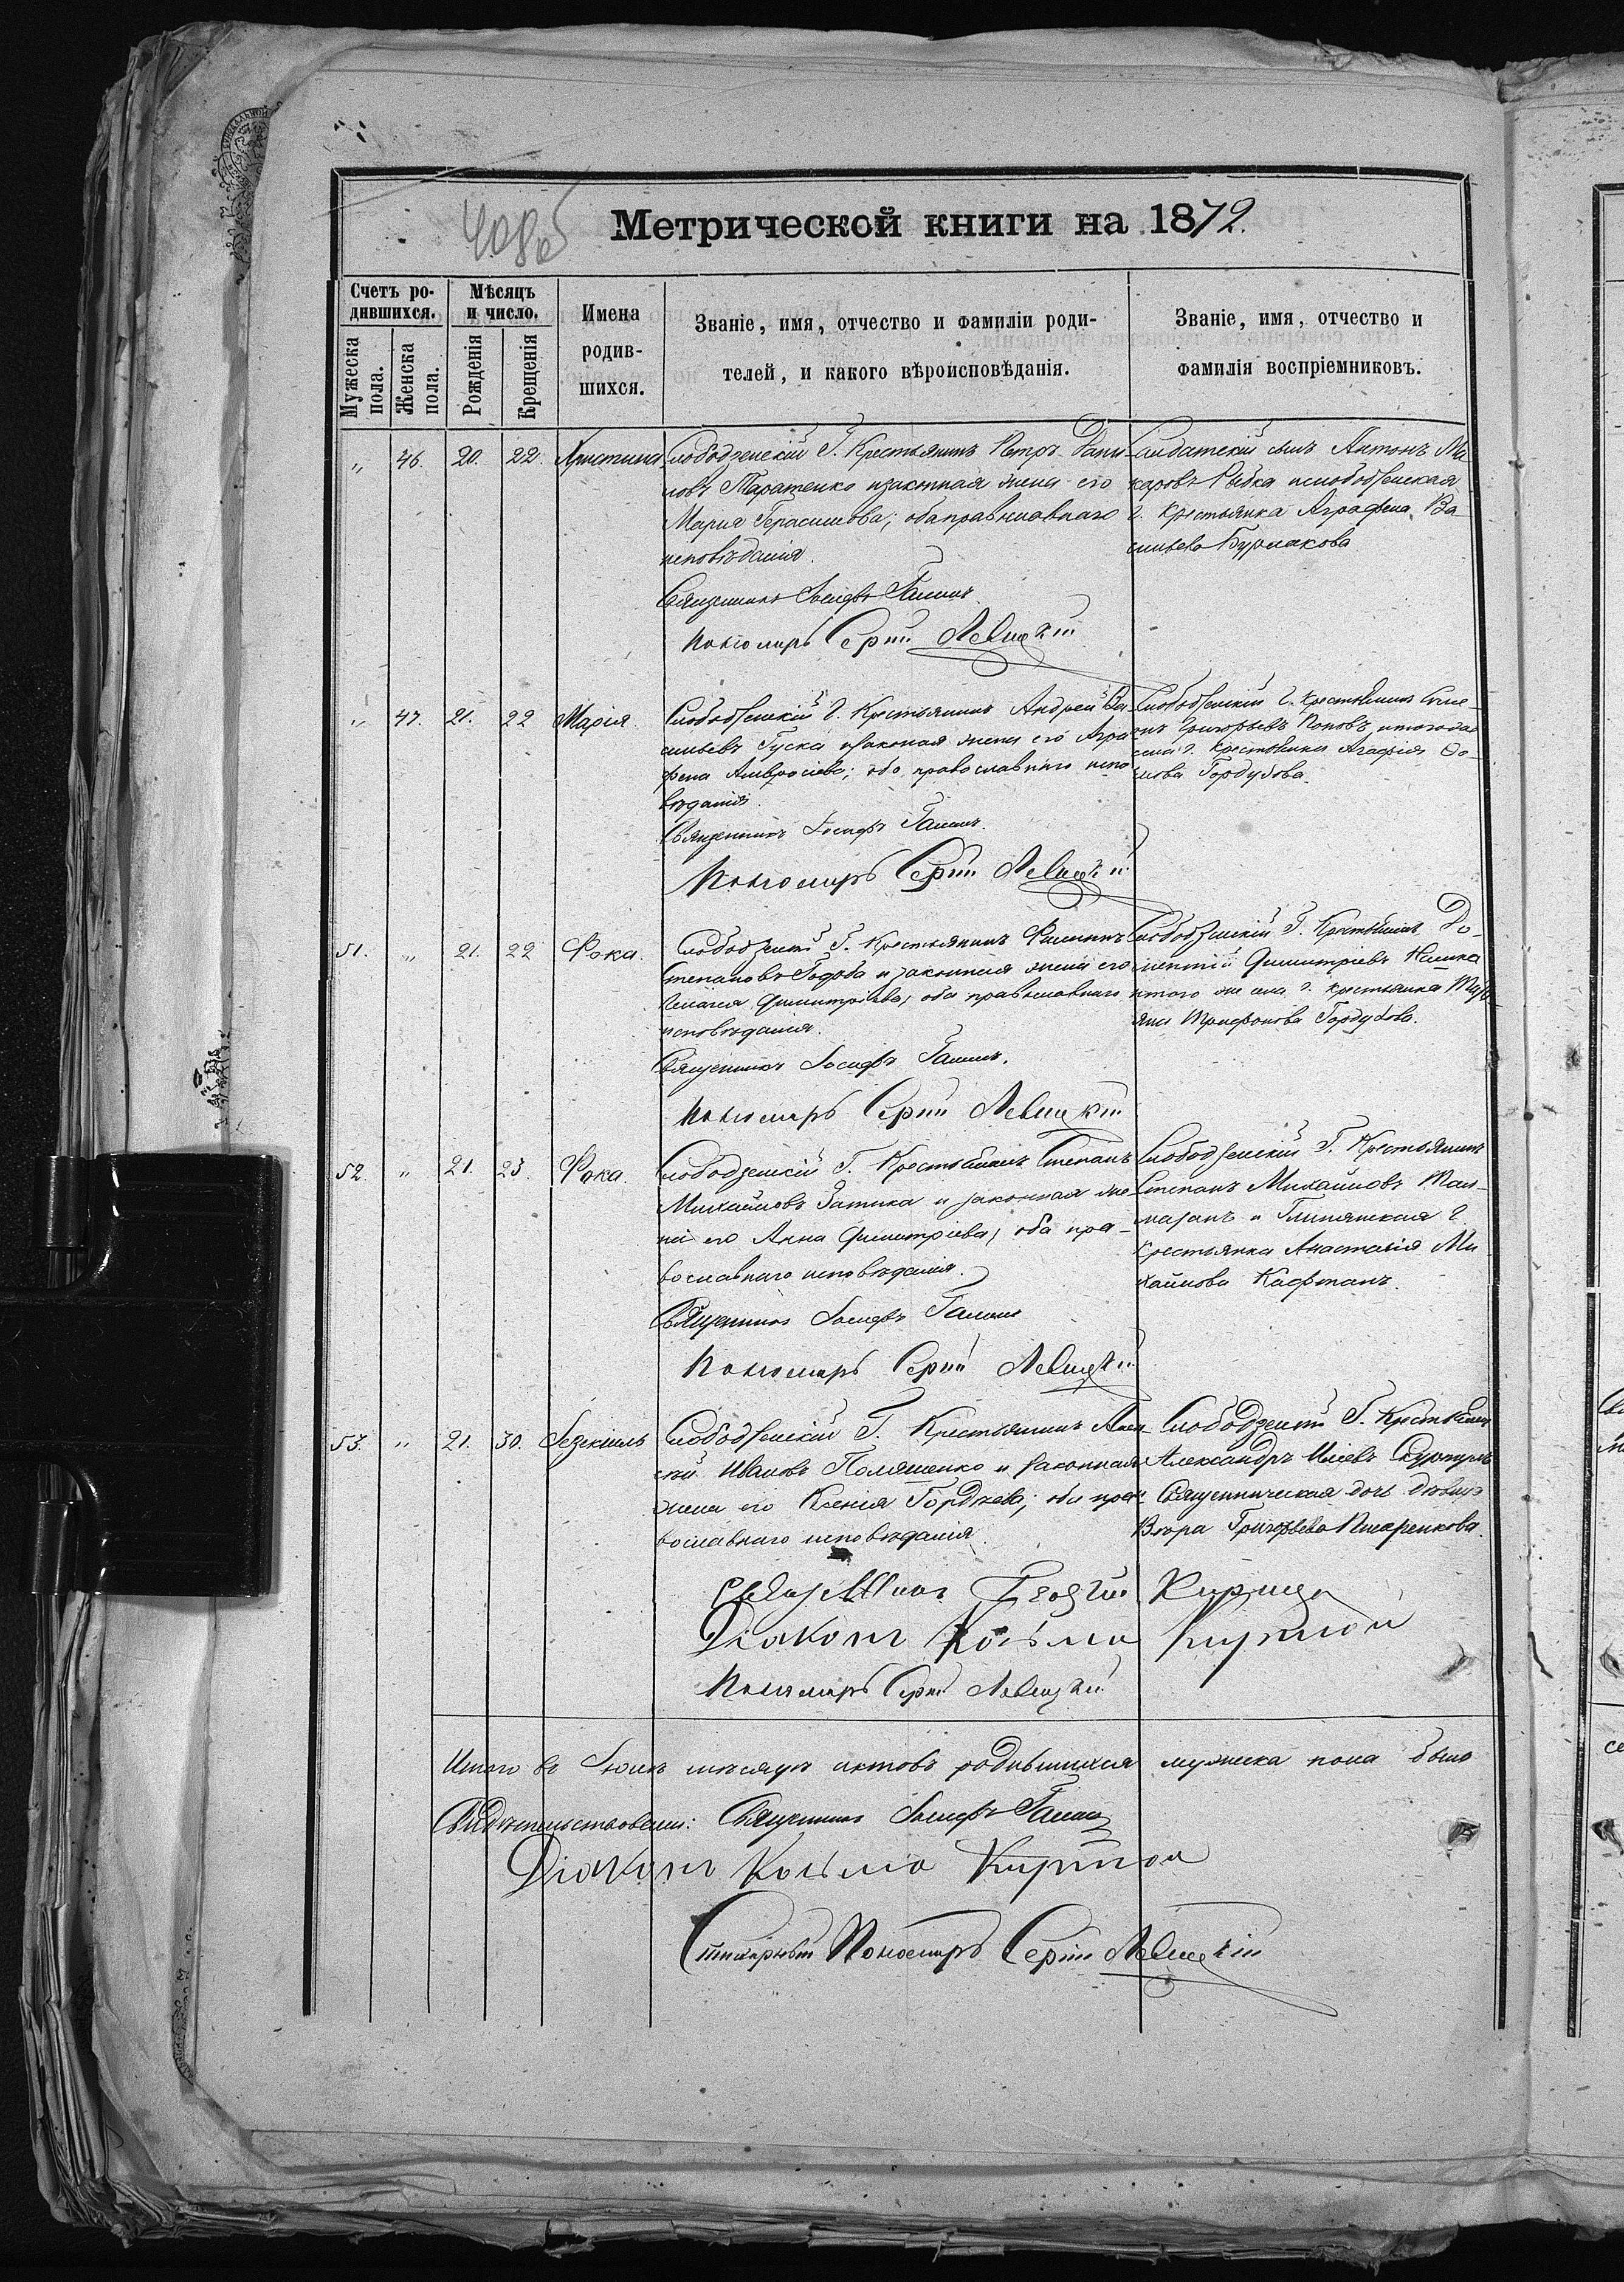 408об
Метрической книги на 1872.
Счетъ ро-
дившихся.
Мужеска пола.
Женска пола.
Мѣсяцъ
и число.
Рожденія
Крещенія
Имена
родив-
шихся.
Званіе, имя, отчество и фамиліи роди-
телей, и какого вѣроисповѣданія.
Званіе, имя, отчество и
фамилія воспріемниковъ.
„ 46. 20. 22. Христина
Слободзейскій Г. Крестьянинъ Петръ Дани
ловъ Таратенко и законная жена его
Мария Герасимова; оба православнаго
исповѣданія.
Священникъ Іосифъ
Пономарь Сергій Левицкій
Солдатскій сынъ Антонъ Ма
каровъ Рыбка и слободзейская
г. крестьянка Аграфена Ва
сильева Бурлакова
„ 47. 21. 22 Марія
Слободзейскій Г. Крестьянинъ Андрей Ва-
сильевъ Гуска и законная жена его Агра
фена Амвросіева; оба православнаго испо
вѣданія.
Священникъ Іосифъ
Пономарь Сергій Левицкій
Слободзейскій Г. Крестьянинъ
Григорьевъ Поповъ и того же
г. Крестьянка Агафія Ѳо-
мова Гордубова.
51. „ 21. 22 Фока.
Слободзейскій Г. Крестьянинъ Филиппъ
Степановъ и законная жена его
Димитріева; оба православнаго
исповѣданія.
Священникъ Іосифъ
Пономарь Сергій Левицкій
Слободзейскій Г. Крестьянинъ До-
ментій Димитріевъ
и того же села г. крестьянка Марі
яна Трифонова Гордубова.
52. „ 21. 23. Фока.
Слободзейскій Г. Крестьянинъ Степанъ
Михайловъ Затика и законная же-
на его Анна Димитріева; оба пра-
вославнаго исповѣданія.
Священникъ Іосифъ
Пономарь Сергій Левицкій
Слободзейскій Г. Крестьянинъ
Степанъ Михайловъ Тал-
мазанъ и Глинянская г.
крестьянка Анастасія Ми-
хайлова Кафтанъ.
53. „ 21. 30. Іезекіиль
Слободзейскій Г. Крестьянинъ Алек
сѣй Ивановъ Поляшенко и законная
жена его Ксенія Гордѣева; оба пра-
вославнаго исповѣданія.
Слободзейскій Г. Крестьянинъ
Александръ
Священническая дочь дѣвица
Вѣра Григорьева Писаренкова.
Священникъ Георгій Кирица
Діаконъ Косьма
Пономарь Сергій Левицкій
Итого въ Іюлѣ мѣсяцѣ актовъ родившихся мужеска пола было
Свидѣтельствовали: Священникъ Іосифъ
Діаконъ Косьма
Стихарный Пономарь Сергій Левицкій